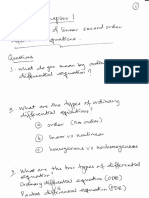 Chapter 1
of linear second order
equations.
Questions
1. What do you mean by ordinary
differential equation?
2. What are the types of ordinary
differential equations?
a order (no order)
b linear vs nonlinear
c homogeneous vs nonhomogeneous
3. What are the two types of differential
equation?
Ordinary differential equation (ODE)
Partial differential equation (PDE)